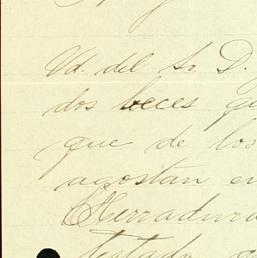 Vd. del Sr. D.
dos veces qu
que de los
agostan en
Herradura